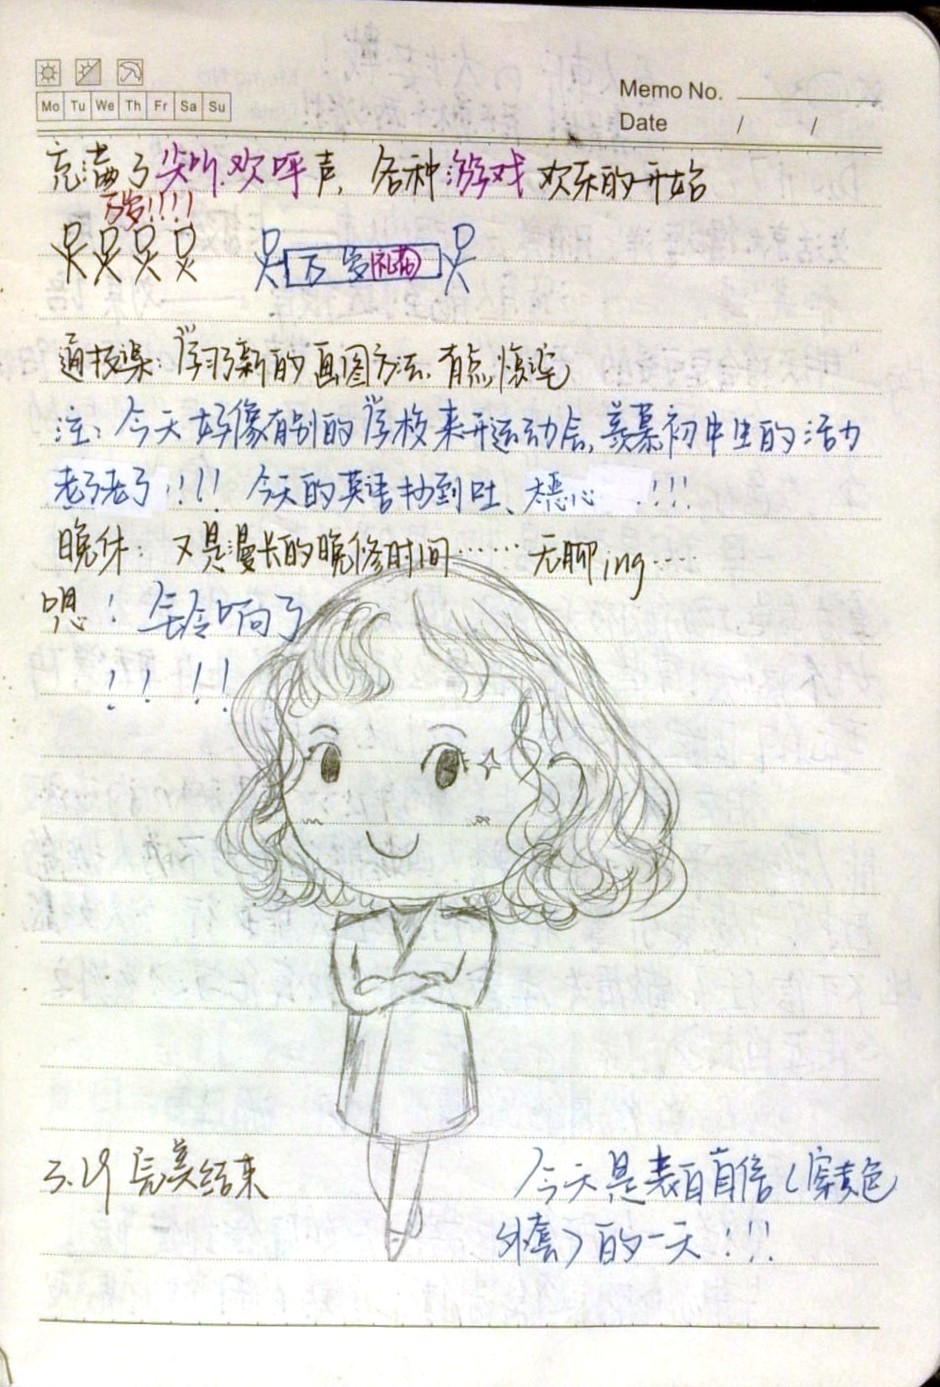 Mo Tu We Th Fr Sa Su
Memo No.
Date / /
充满了尖叫、欢呼声，各种游戏欢乐的开始
万岁!!!!
万岁礼苗
通技课：学习了新的画图方法，有点懵逼
注：今天好像有别的学校来开运动会，羡慕初中生的活力
老了老了!!!! 今天的英语抄到吐、太恶心 !!!!
晚休：又是漫长的晚修时间…… 无聊ing……
嗯！车铃响了
!! !!
3.29 完美结束
今天是表白自信（穿麦色
外套）的一天!!!